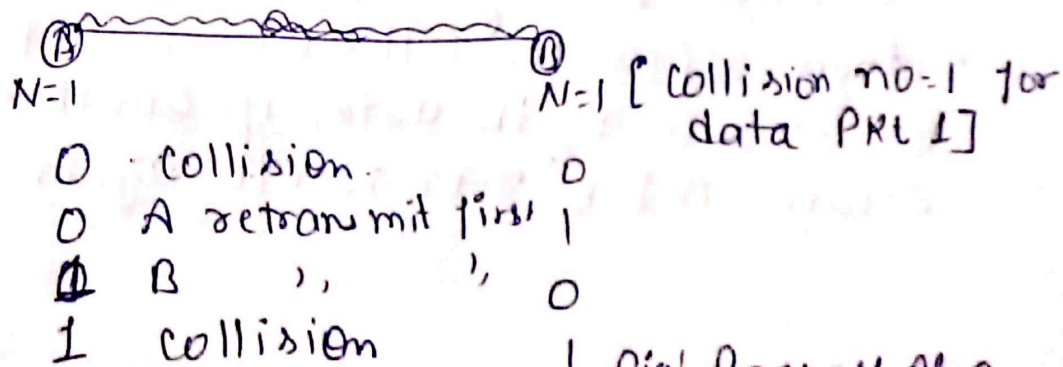 A B
N=1 N=1 [Collision no=1 for
data PKt 1]
0 collision. 0
0 A retransmit first 1
1 B ,, ,, 0
1 collision 1